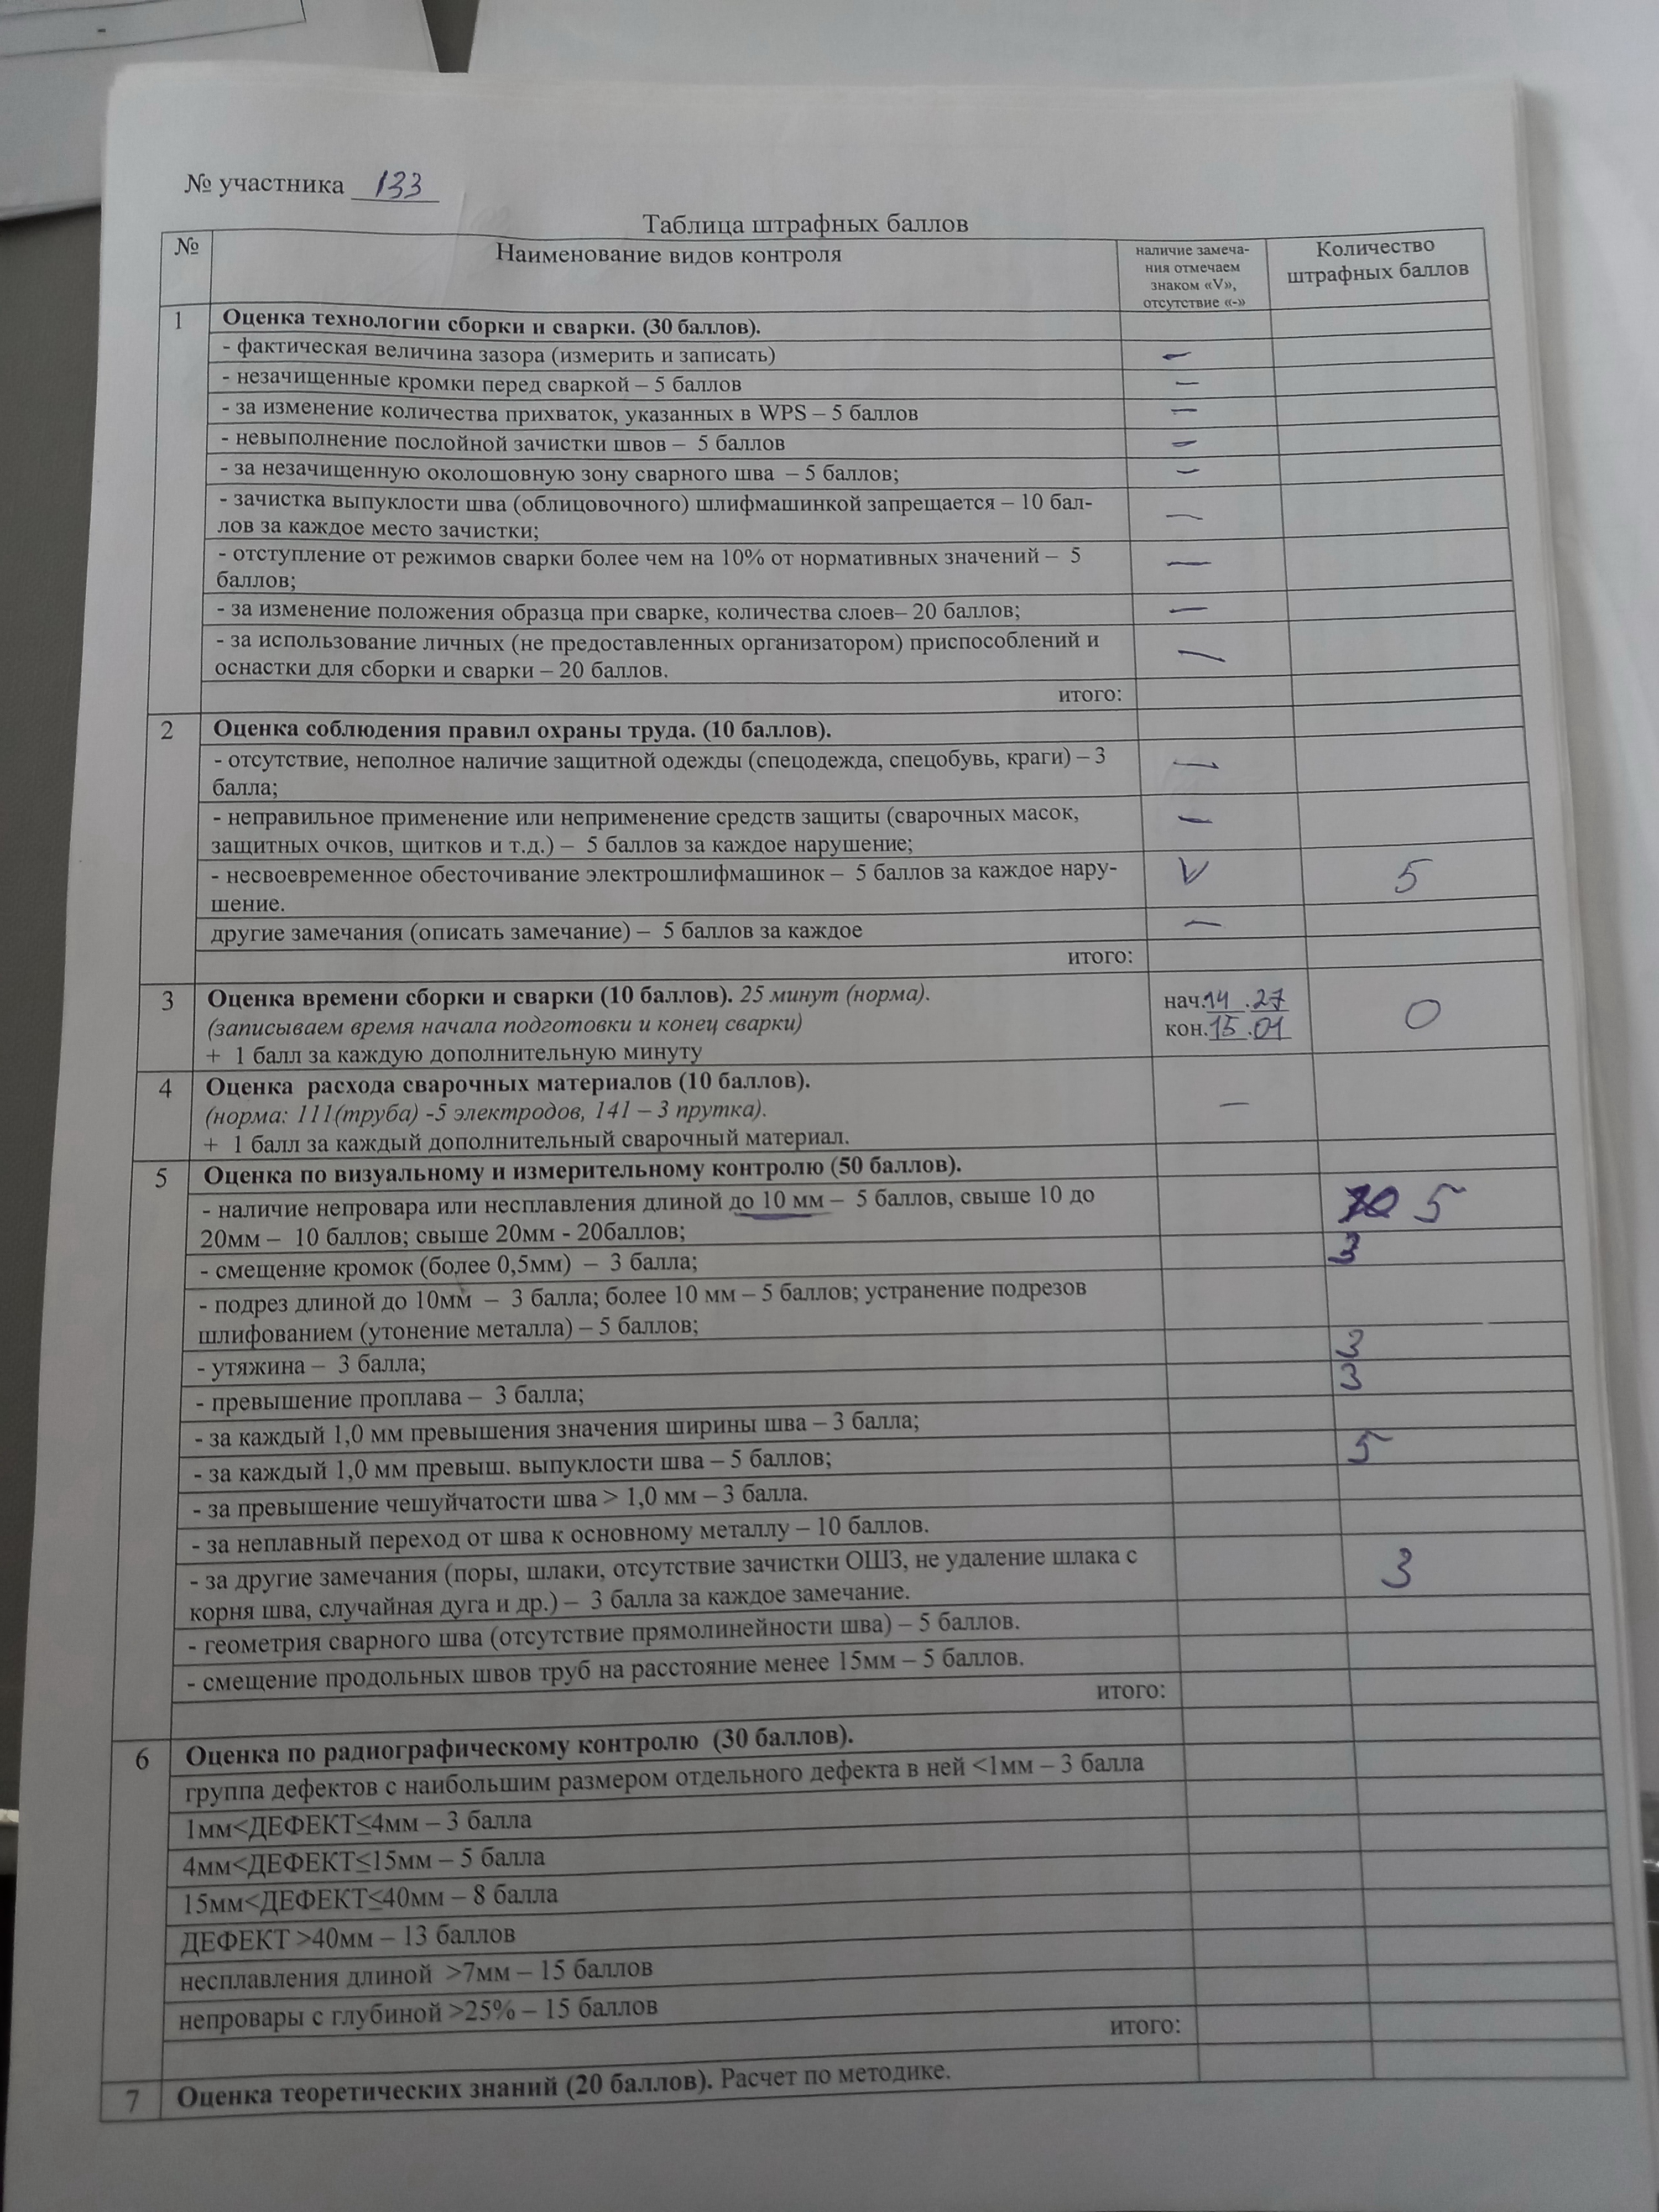 № участника 133
Таблица штрафных баллов
№
Наименование видов контроля
наличие замеча-
ния отмечаем
знаком «V»,
отсутствие «-»
Количество
штрафных баллов
1
Оценка технологии сборки и сварки. (30 баллов).
- фактическая величина зазора (измерить и записать) –
- незачищенные кромки перед сваркой – 5 баллов –
- за изменение количества прихваток, указанных в WPS – 5 баллов –
- невыполнение послойной зачистки швов – 5 баллов –
- за незачищенную околошовную зону сварного шва – 5 баллов; –
- зачистка выпуклости шва (облицовочного) шлифмашинкой запрещается – 10 бал-
лов за каждое место зачистки; –
- отступление от режимов сварки более чем на 10% от нормативных значений – 5
баллов; –
- за изменение положения образца при сварке, количества слоев– 20 баллов; –
- за использование личных (не предоставленных организатором) приспособлений и
оснастки для сборки и сварки – 20 баллов. –
итого:
2
Оценка соблюдения правил охраны труда. (10 баллов).
- отсутствие, неполное наличие защитной одежды (спецодежда, спецобувь, краги) – 3
балла; –
- неправильное применение или неприменение средств защиты (сварочных масок,
защитных очков, щитков и т.д.) – 5 баллов за каждое нарушение; –
- несвоевременное обесточивание электрошлифмашинок – 5 баллов за каждое нару-
шение. V 5
другие замечания (описать замечание) – 5 баллов за каждое –
итого:
3
Оценка времени сборки и сварки (10 баллов). 25 минут (норма).
(записываем время начала подготовки и конец сварки)
+ 1 балл за каждую дополнительную минуту
нач.14.27
кон.15.01
0
4
Оценка расхода сварочных материалов (10 баллов).
(норма: 111(труба) -5 электродов, 141 – 3 прутка).
+ 1 балл за каждый дополнительный сварочный материал.
–
5
Оценка по визуальному и измерительному контролю (50 баллов).
- наличие непровара или несплавления длиной до 10 мм – 5 баллов, свыше 10 до
20мм – 10 баллов; свыше 20мм - 20баллов; 5
- смещение кромок (более 0,5мм) – 3 балла;
- подрез длиной до 10мм – 3 балла; более 10 мм – 5 баллов; устранение подрезов
шлифованием (утонение металла) – 5 баллов;
- утяжина – 3 балла; 3
- превышение проплава – 3 балла; 3
- за каждый 1,0 мм превышения значения ширины шва – 3 балла;
- за каждый 1,0 мм превыш. выпуклости шва – 5 баллов; 5
- за превышение чешуйчатости шва > 1,0 мм – 3 балла.
- за неплавный переход от шва к основному металлу – 10 баллов.
- за другие замечания (поры, шлаки, отсутствие зачистки ОШЗ, не удаление шлака с
корня шва, случайная дуга и др.) – 3 балла за каждое замечание. 3
- геометрия сварного шва (отсутствие прямолинейности шва) – 5 баллов.
- смещение продольных швов труб на расстояние менее 15мм – 5 баллов.
итого:
6
Оценка по радиографическому контролю (30 баллов).
группа дефектов с наибольшим размером отдельного дефекта в ней <1мм – 3 балла
1мм<ДЕФЕКТ≤4мм – 3 балла
4мм<ДЕФЕКТ≤15мм – 5 балла
15мм<ДЕФЕКТ≤40мм – 8 балла
ДЕФЕКТ >40мм – 13 баллов
несплавления длиной >7мм – 15 баллов
непровары с глубиной >25% – 15 баллов
итого:
7
Оценка теоретических знаний (20 баллов). Расчет по методике.